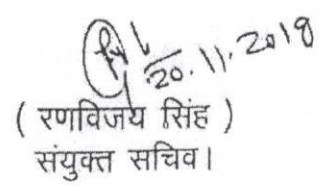 20.11.2019
( रणविजय सिंह )
संयुक्त सचिव।